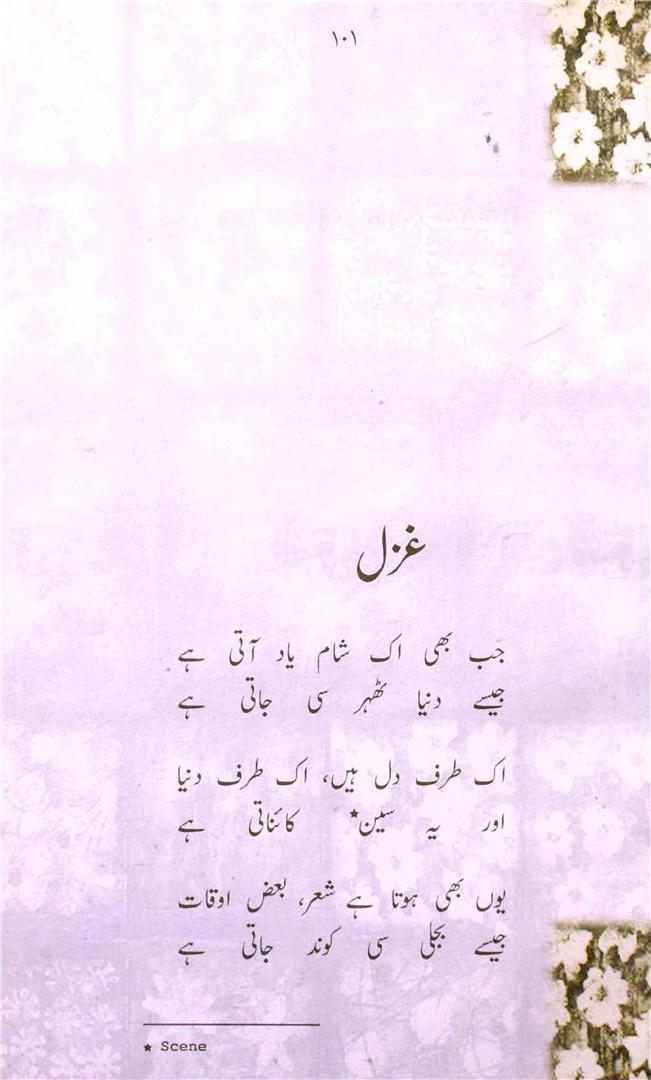 ۱۰۱
غزل
جب بھی اک شام یاد آتی ہے
جیسے دنیا ٹھہر سی جاتی ہے
اک طرف دل ہیں، اک طرف دنیا
اور یہ سین★ کائناتی ہے
یوں بھی ہوتا ہے شعر، بعض اوقات
جیسے بجلی سی کوند جاتی ہے
★ Scene